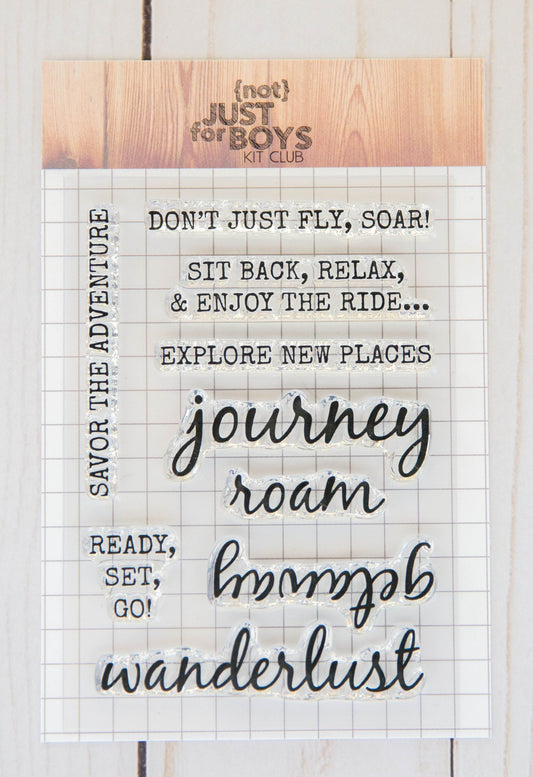 {not}
JUST
for BOYS
KIT CLUB
SAVOR THE ADVENTURE
DON'T JUST FLY, SOAR!
SIT BACK, RELAX,
& ENJOY THE RIDE...
EXPLORE NEW PLACES
journey
roam
READY,
SET,
GO!
getaway
wanderlust